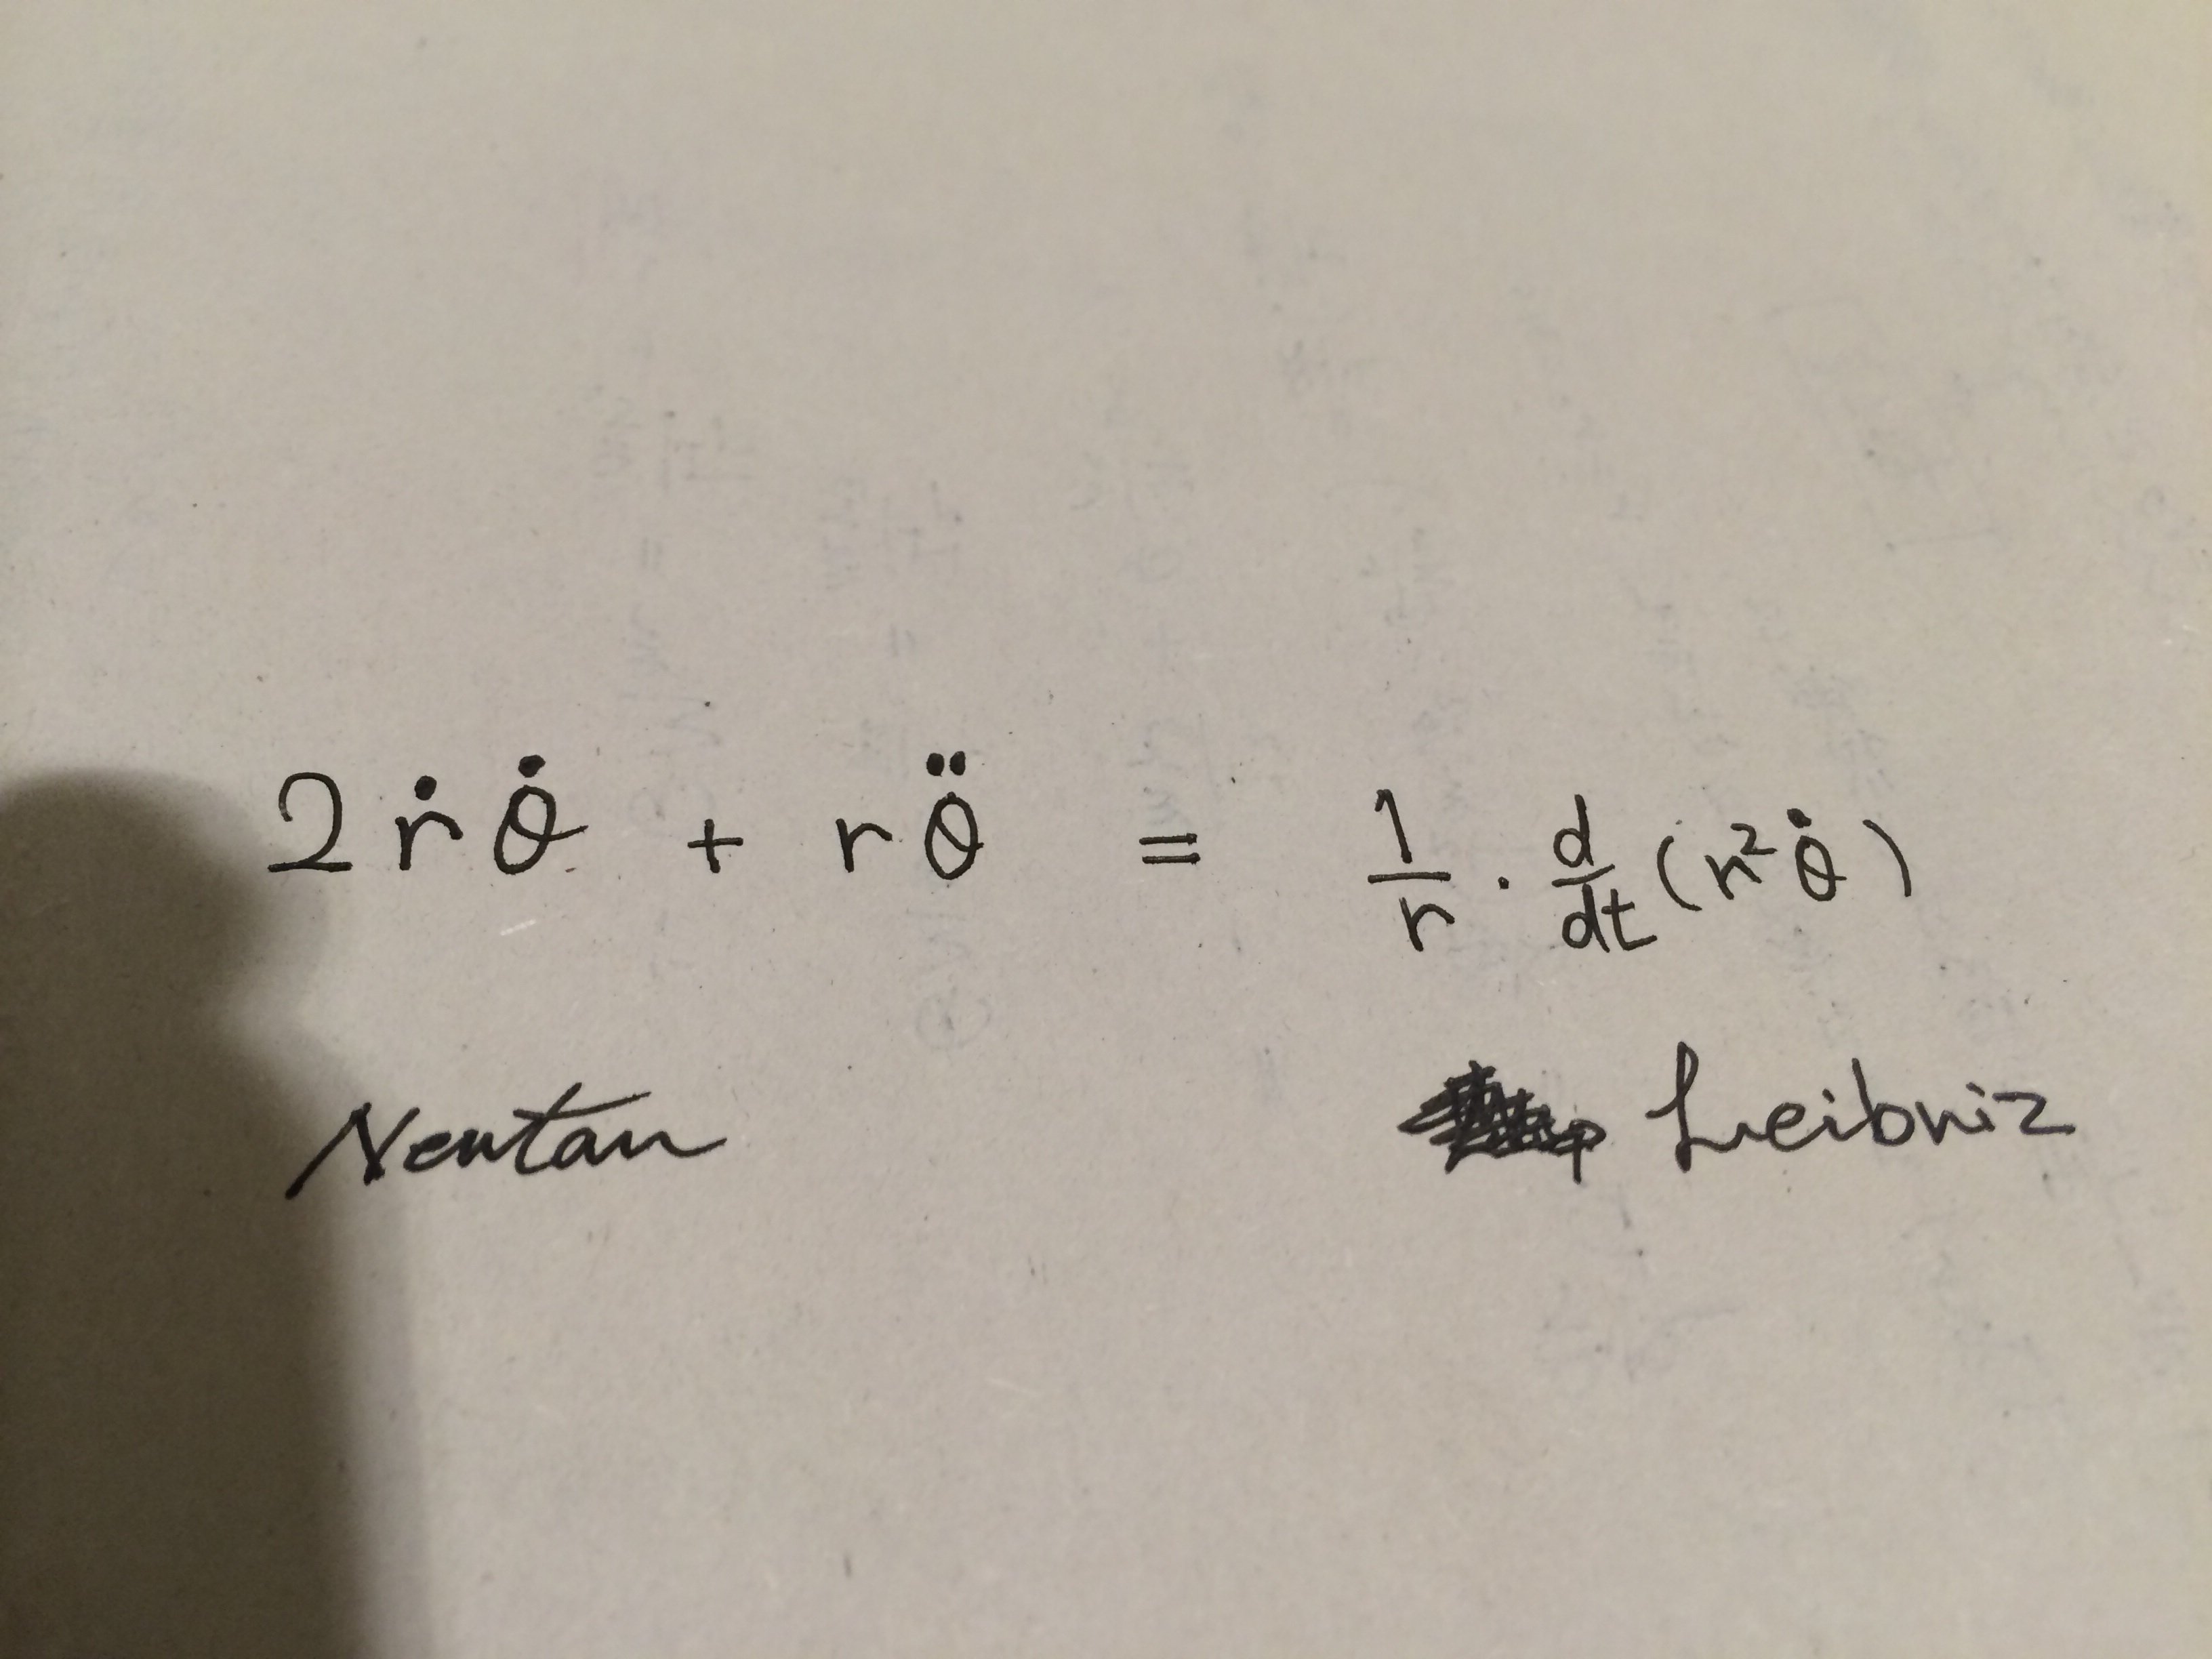 2ṙθ̇ + rθ̈ = 1/r · d/dt (r²θ̇)
Newtan Leibniz